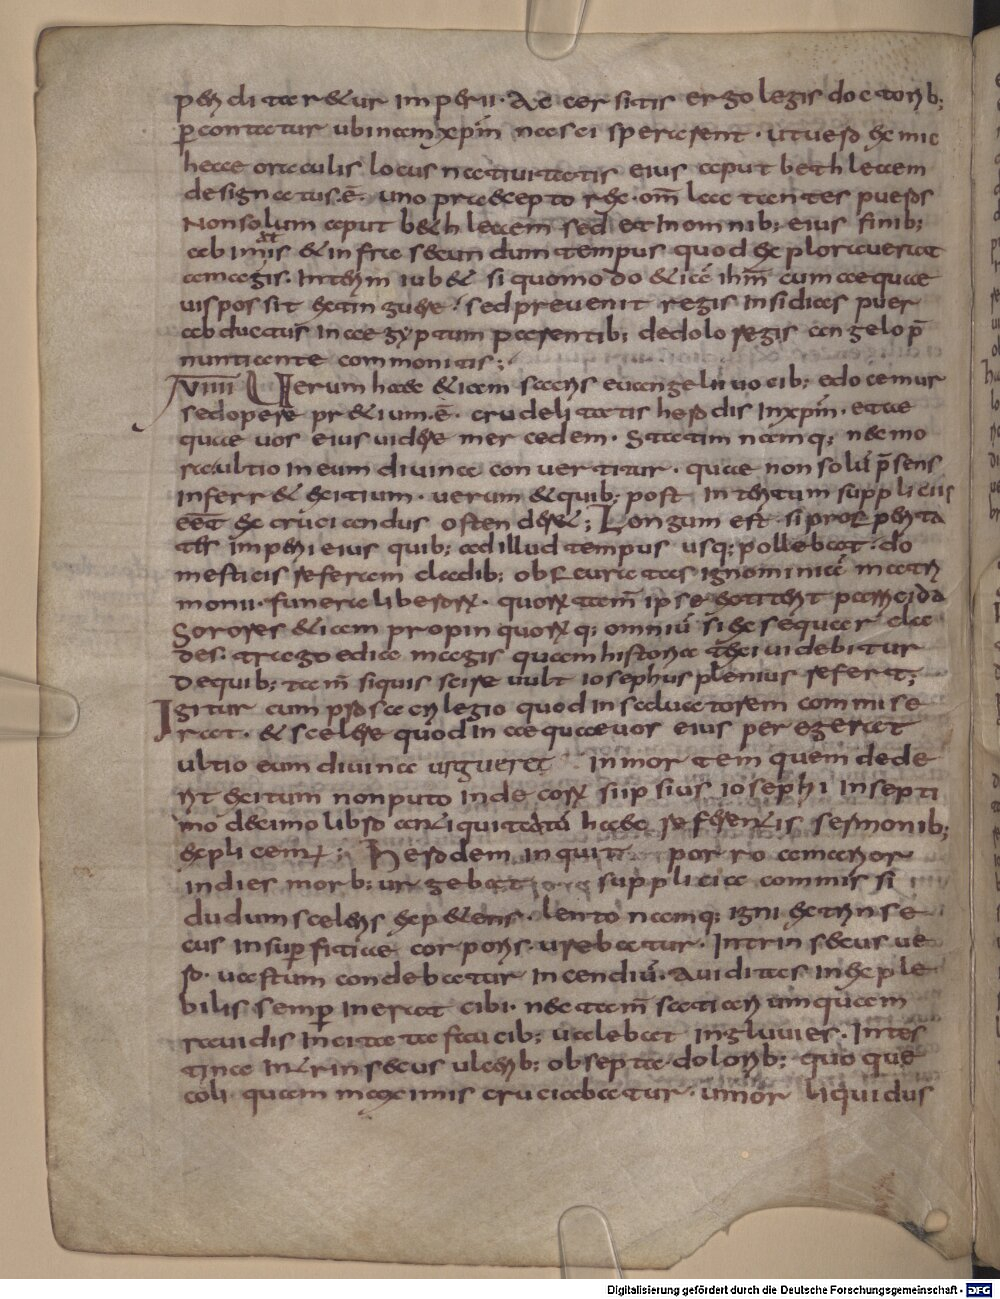 penditaretur imperii. Accersitis ergo legis doctorib;
percontatur ubinam xpm nasci sperarent. ut uero ex mic
heae oraculis locus natiuitatis eius aput bethleem
designatus.ē. uno praecepto rex. om̄ lactantes pueros
Non solum aput bethleem sed et In omnib; eius finib;
ab imis & infra secundum tempus quod explorauerat
a magis. Interim iub& si quomodo &iā ihm̄ cum aequae
uis possit extinguere. sed preuenit regis Insidias puer
abductus In aegyptum parentib; de dolo regis angelo p̄
nuntiante commonitis;
VIIII Uerum haec &iam sacris euangelii uocib; edocemur
sed opere pr&ium.ē. crudelitatis herodis In xpm̄. et ae
quaeuos eius uidere mercedem. Statim namq; nec mo
rata ultio in eum diuina conuertitur. quae non solū p̄sens
inferr& exitium. uerum & quib; post Interitum suppliciis
eēt excruciandus ostender&; Longum est. si prosperita
tēs imperii eius quib; ad illud tempus usq; pollebat. do
mesticis referam cladib; obscuratas ignominiā matri
monii. funera liberorum. quorum tam̄ ipse extitit parricida
Sorores &iam propinquorumq; omniū si exsequar cla
des. tragoedia magis quam historia texi uidebitur
De quib; tam̄ siquis scire uult iosephus plenius refert;
Igitur cum pro sacrilegio quod In saluatorem commise
rat. & scelere quod In aequaeuos eius peregerat
ultio eum diuina urgueret In mortem quem dede
rit exitum non puto inde[...] iosephi In septi
mo decimo libro antiquitatū haec referentis sermonib;
explicemus; Herodem inquit porro amarior
indies morb; urgebat supplicia commissi
dudum sceleris expetens. lento namq; igni extrinse
cus In superfitiae corporis. urebatur. Intrinsecus ue
ro. uastum condebatur Incendiū. Auiditas Inexple
bilis semper Inerat cibi. nec tam̄ satiari umquam
rauidis Incitata faucib; ualebat Ingluuies. Intes
tina Intrinsecus ulcerib; obsepta. dolorib; quoque
coli quam maximis cruciabatur. umor liquidus
Digitalisierung gefördert durch die Deutsche Forschungsgemeinschaft - DFG